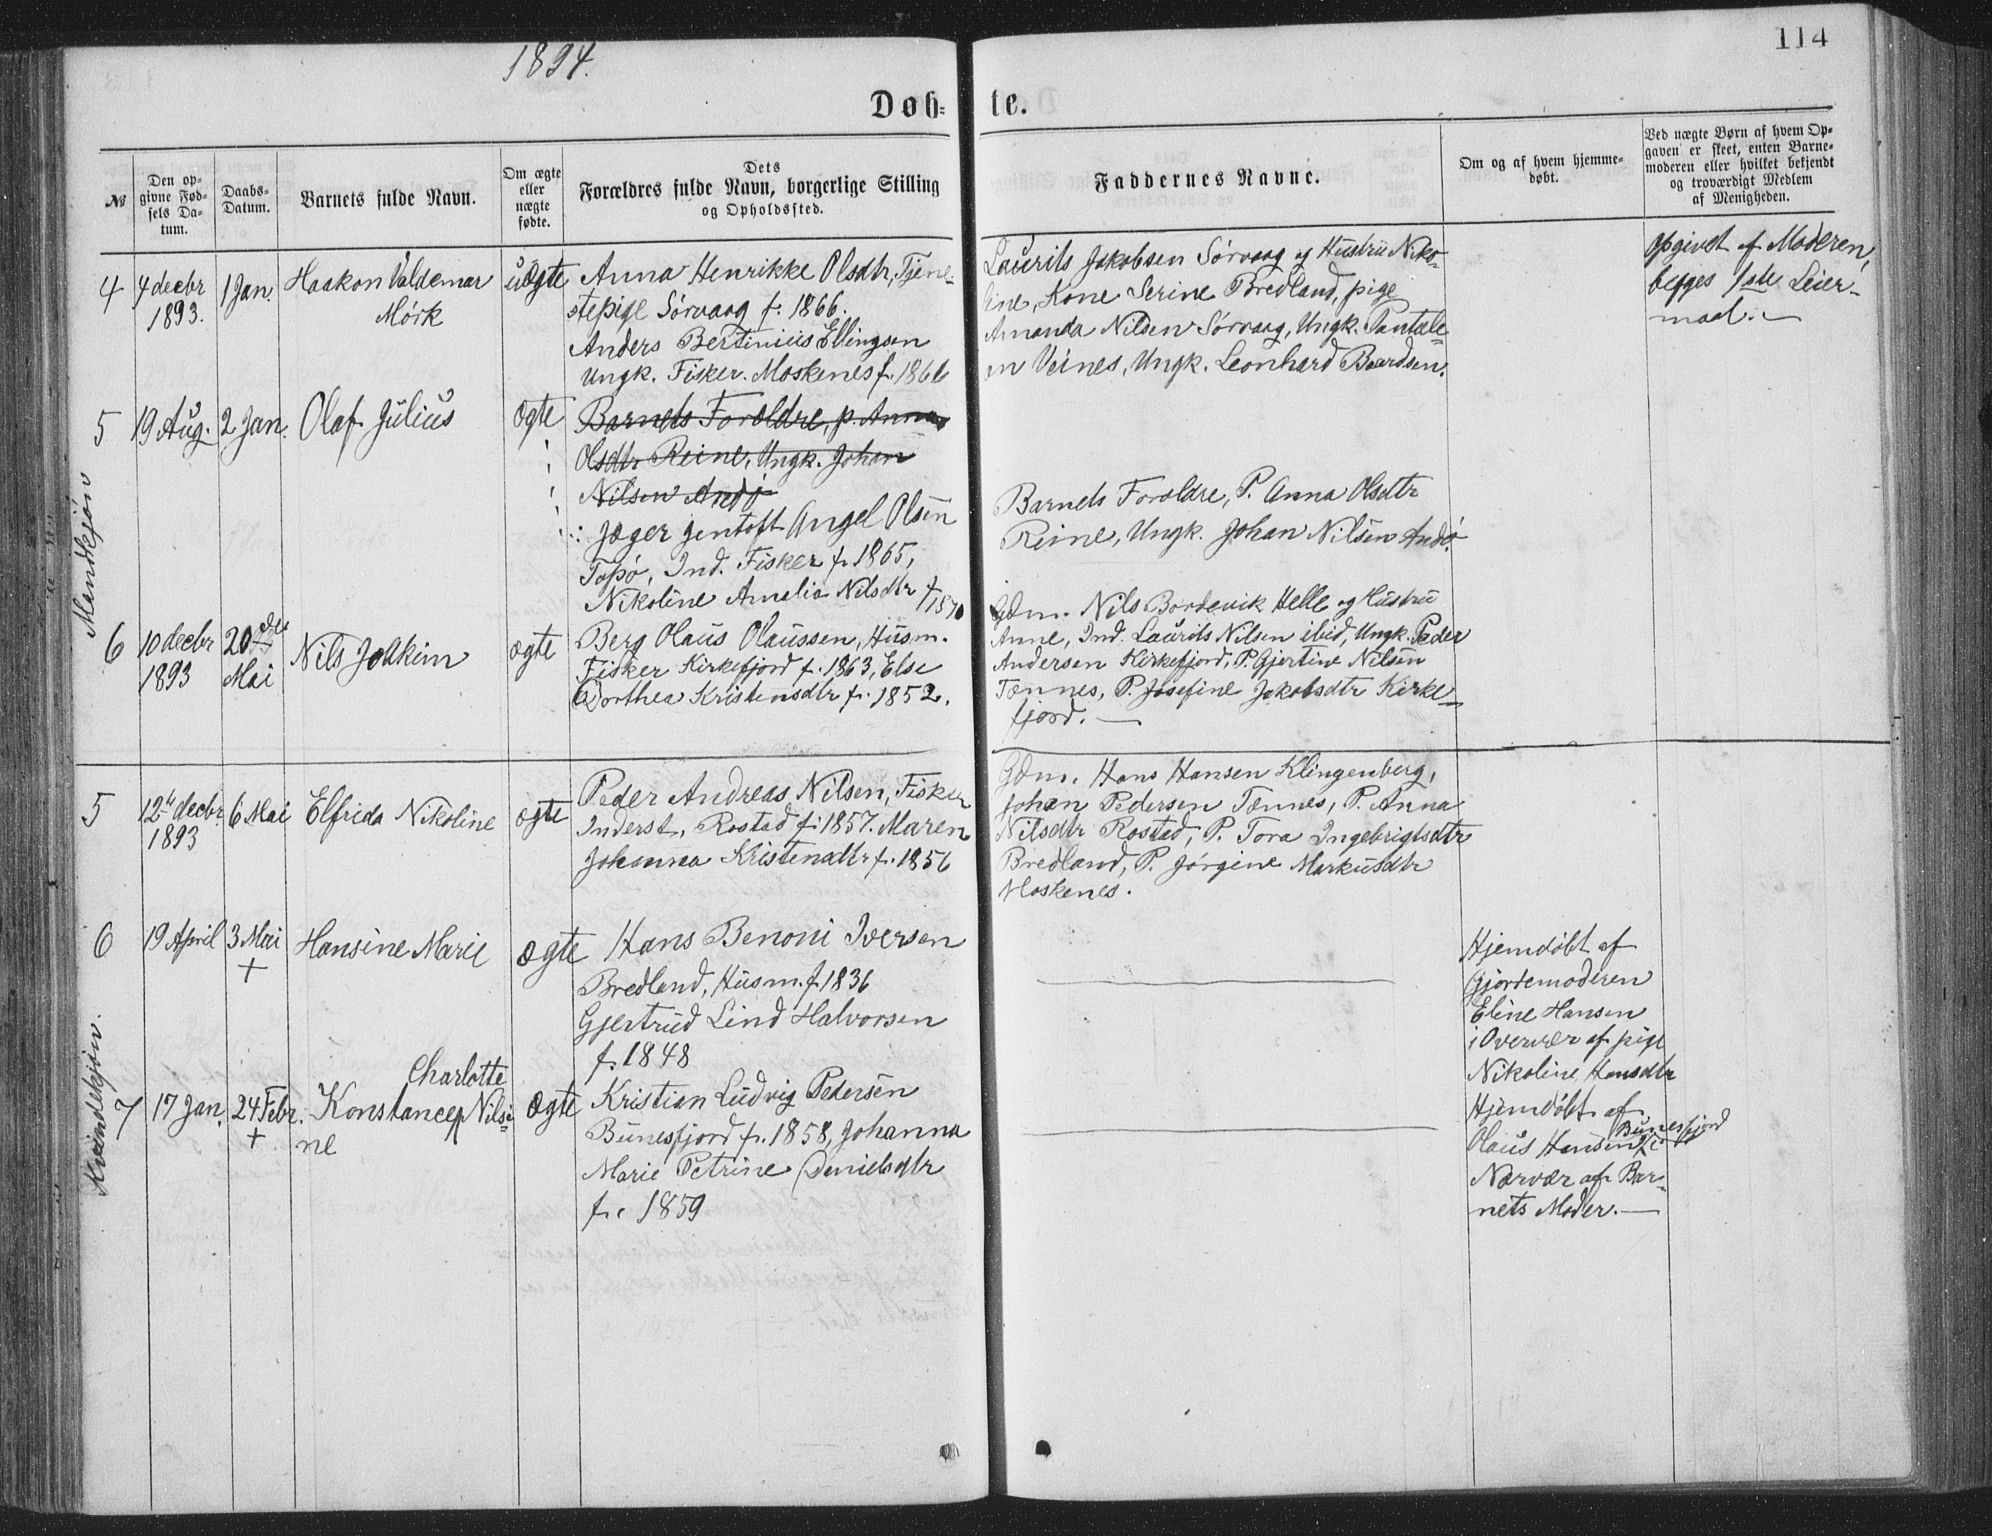 1894.
114
Døb-
te.
№
Den op-
givne Fød-
sels Da-
tum.
Daabs-
Datum.
Barnets fulde Navn.
Om ægte
eller
uægte
fødte.
Dets
Forældres fulde Navn, borgerlige Stilling
og Opholdssted.
Faddernes Navne.
Om og af hvem hjemme-
døbt.
Ved uægte Børn af hvem Op-
gaven er skeet, enten Barne-
moderen eller hvilket bekjendt
og troværdigt Medlem
af Menigheden.
Mandkjøn
4
4 decbr
1893.
1 Jan.
Haakon Valdemar
Mörk
uægte
Anna Henrikke Olsdtr, Tjene-
stepige Sörvaag f. 1866.
Anders Bertinius Ellingsen
Ungk. Fisker. Moskenes f. 1866
Laurits Jakobsen Sörvaag og Hustru Niko-
line, Kone Serine Bredland, pige
Amanda Nilsen Sörvaag, Ungk. Pantale-
on Veines, Ungk. Leonhard Baardsen.
Opgivet af Moderen,
begges 1ste Leier-
maal.-
5
19 Aug.
2 Jan.
Olaf Julius
ægte
Barnets Foræoldre, p. Anna
Olsdtr Reine, Ungk. Johan
Nilsen Andö
Jæger Jentoft Angel Olsen
Topö, Ind. Fisker f. 1865,
Nikoline Amalia Nilsdtr f 1870
Barnets Forældre, P. Anna Olsdtr
Reine, Ungk. Johan Nilsen Andö.
6
10 decbr
1893
20de
Mai
Nils Joakim
ægte
Berg Olaus Olaussen, Husm.
Fisker Kirkefjord f. 1863, Else
Dorthea Kristensdtr f. 1852.
Gdm. Nils Bordevik Helle og Hustru
Anne, Ind. Laurits Nilsen ibid, Ungk. Peder
Andersen Kirkefjord, P. Gjertine Nilsen
Tennes, P. Josefine Jakobsdtr Kirke-
fjord.
Kvindekjøn.
5
12te decbr.
1893
6 Mai
Elfrida Nikoline
ægte
Peder Andreas Nilsen, Fisker
Inderst, Rostad f. 1857. Maren
Johanna Kristensdtr f. 1856
Gdm. Hans Hansen Klingenberg,
Johan Pedersen Tennes, P. Anna
Nilsdtr Rostad, P. Tora Ingebrigtsdtr
Bredland, P. Jörgine Markusdtr
Moskenes.
6
19 April
3 Mai
+
Hansine Marie
ægte
Hans Benoni Iversen
Bredland, Husm. f. 1836
Gjertrud Lind Halvorsen
f. 1848
Hjemdöbt af
Gjordemoderen
Eline Hansen
i Overvær af pige
Nikoline Hansdtr
7
17 Jan.
24 Febr.
+
Charlotte
Konstance Nilsi-
ne
ægte
Kristian Ludvig Pedersen
Bunesfjord f. 1858, Johanna
Marie Petrine Danielsdtr
f. 1859
Hjemdöbt af
Bunesfjord
Olaus Hansen i
Nærvær af Bar-
nets Moder.